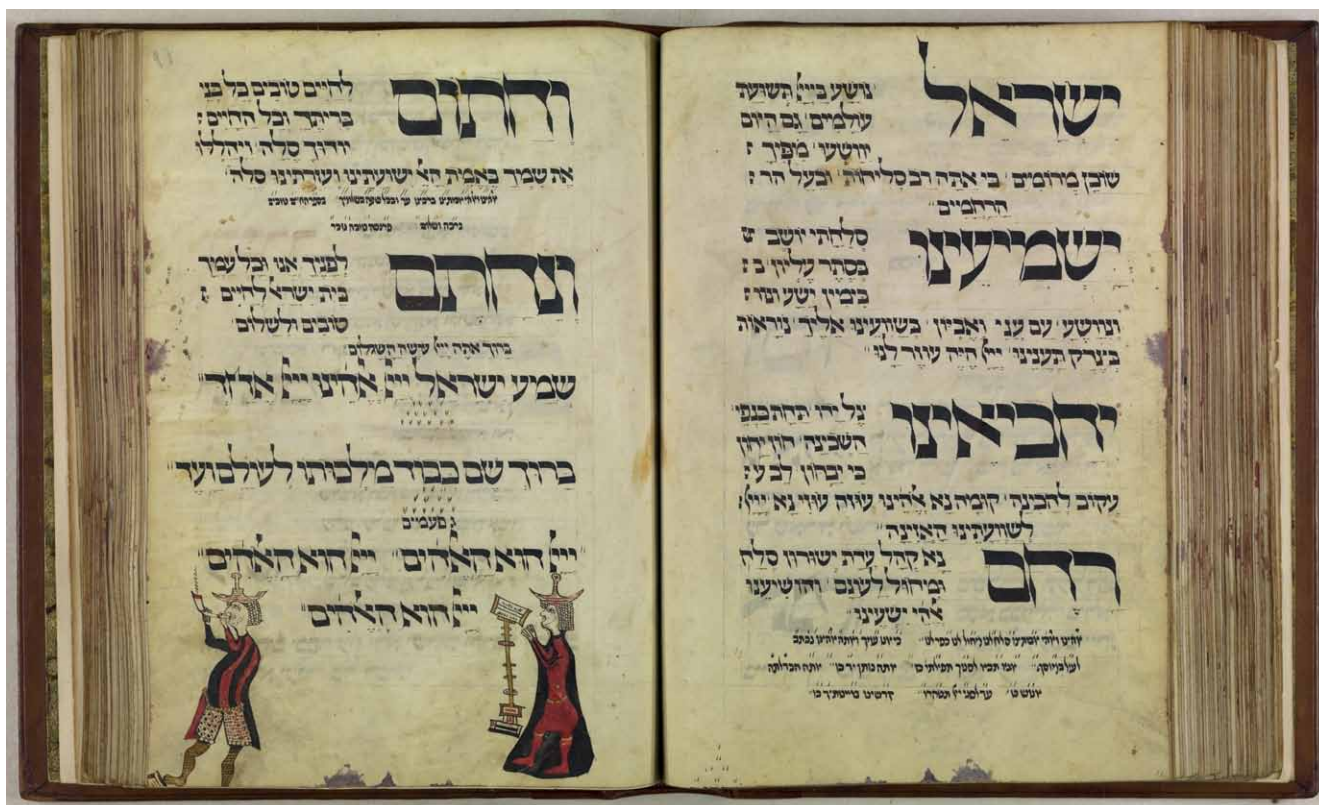 ישראל נושע בייי תשועת
עולמים גם היום
יוושעו מפיך
שוכן מרומים כי אתה רב סליחות ובעל הר
הרחמים
ישמיעינו סלחתי יושב
בסתר עליון ב
בימין ישע
ותושע עם עני ואביון בשוועינו אליך נוראות
בצדק תענינו ייי היה עוזר לנו
יחביאינו צל ידו תחת כנפי
השכינה חון יחון
כי יבחון לב ע
עקוב להכינה קומה נא אלהינו עוזה עוזי נא ייי
לשוועתינו האזינה
רחם נא קהל עדת ישורון סלח
ומחול לעונם והושיענו
אלהי ישעינו
וחתום לחיים טובים כל בני
בריתך וכל החיים
יודוך סלה ויהללו
את שמך באמת האל ישועתינו ועזרתינו סלה
בספר חיים טובים
ברכה ושלום פרנסה טובה
ונחתם לפניך אנו וכל עמך
בית ישראל לחיים
טובים ולשלום
ברוך אתה ייי עושה השלום
שמע ישראל ייי אלהינו ייי אחד
ברוך שם כבוד מלכותו לעולם ועד
ג פעמים
ייי הוא האלהים ייי הוא האלהים
ייי הוא האלהים